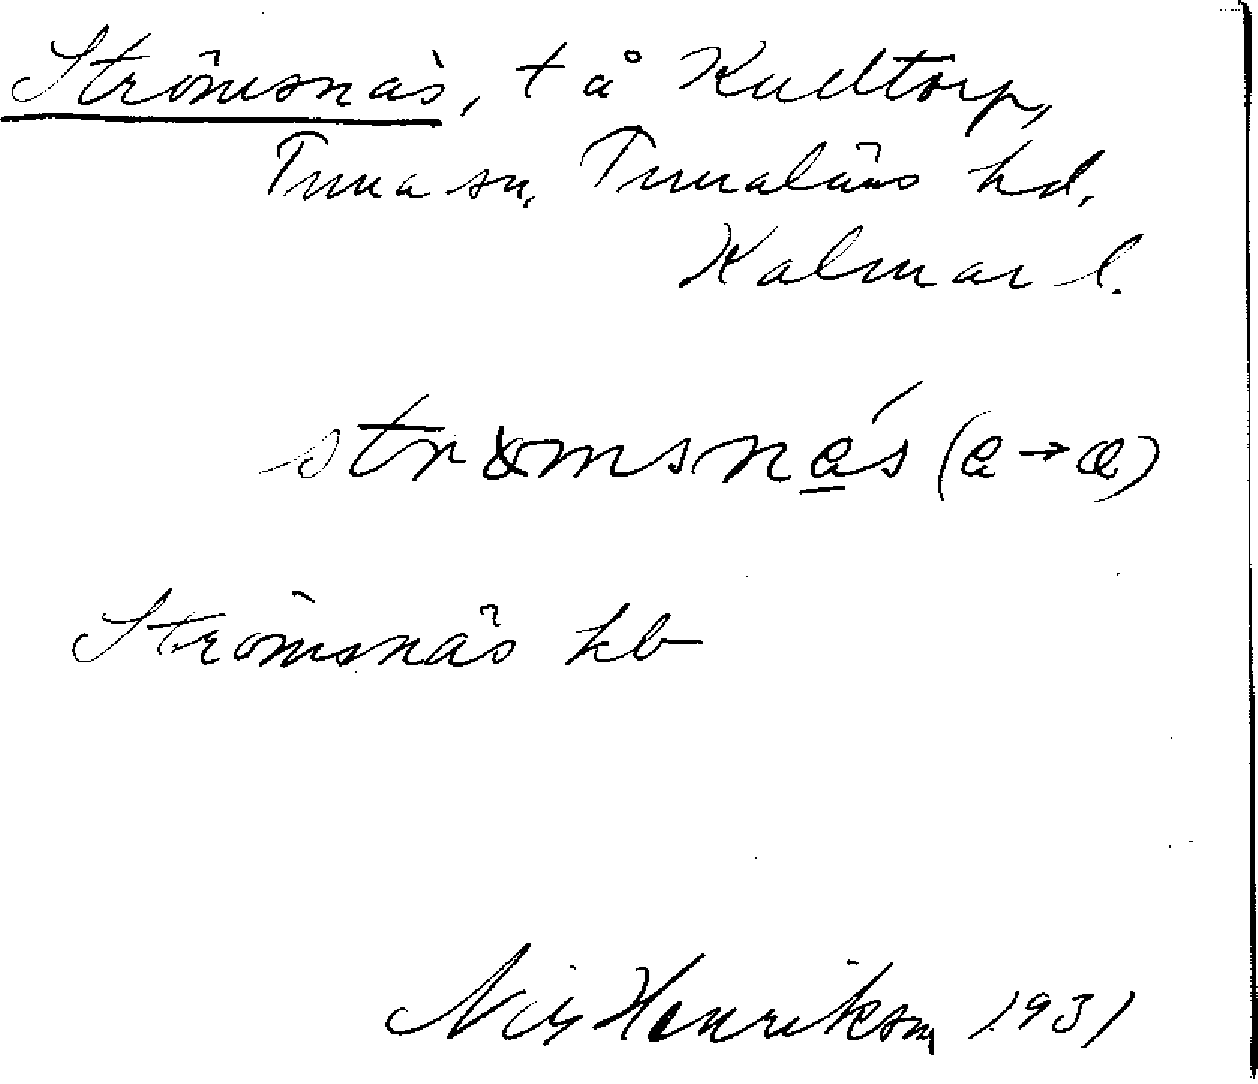 Strömsnäs, t å Kulltorp,
Tuna sn, Tunaläns hd,
Kalmar l.
Strömsnäs kb
Nils Henrikson 1931